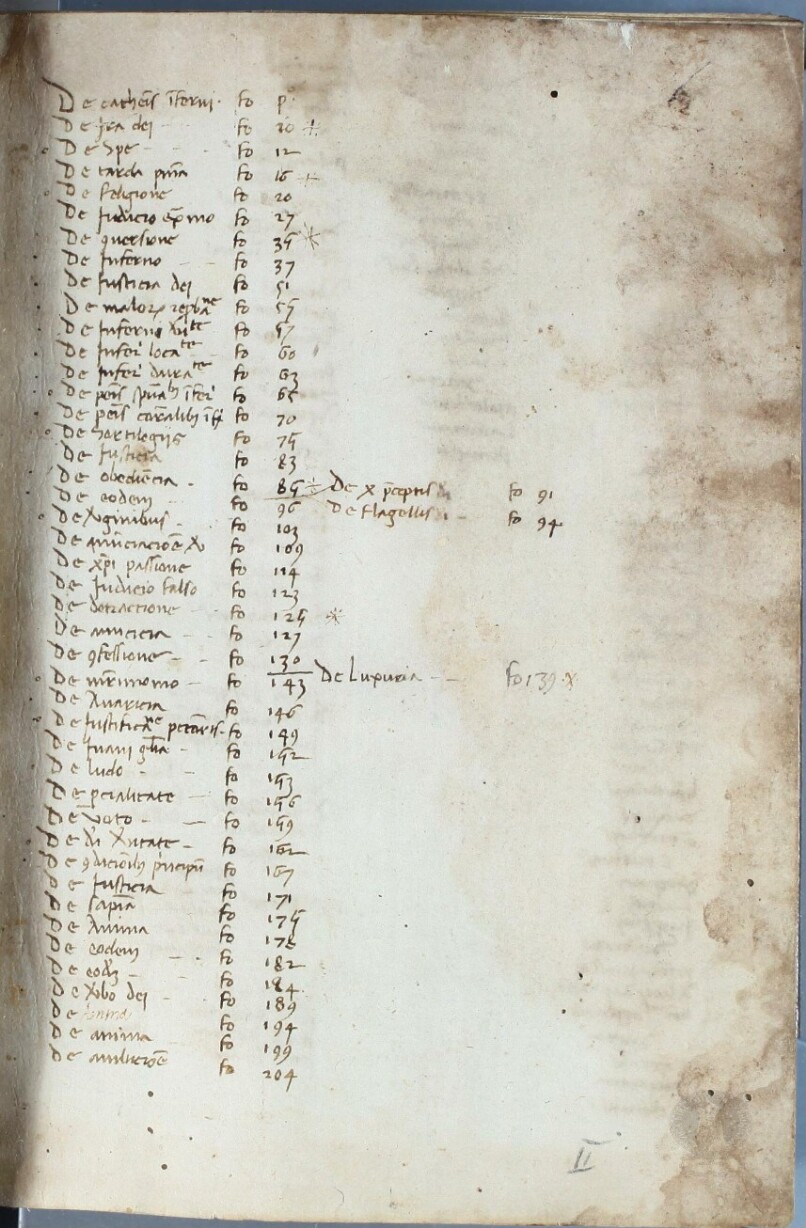 De cathenis iferni fo p
De Ira dei fo 10
De Spe fo 12
De tarda pnia fo 16
De Religione fo 20
De Judicio exmo fo 27
De 9versione fo 35
De Inferno fo 37
De Justicia dei fo 51
De malorz fo 55
De Inferni fo 57
De Infer loca te fo 60
De Infer dura te fo 63
De penis ifer fo 65
De penis fo 70
De Sortilegijs fo 75
De Justicia fo 83
De obediencia fo 85 De x pceptis fo 91
De eodem fo 96 De Flagellis fo 94
De Xginibus fo 103
De fo 109
De xpi passione fo 114
De Judicio falso fo 123
De detractione fo 125
De amicicia fo 127
De 9fessione fo 130
De mrimonio fo 143 De Luxuria fo 139 x
De Avaricia fo 146
De Justificae fo 149
De Inani glia fo 152
De ludo fo 153
De fo 156
De Voto fo 159
De fo 162
De 9dicionibus fo 167
De Justicia fo 171
De Sapia fo 175
De Anima fo 178
De eodem fo 182
De eodz fo 184
De Xbo dei fo 189
De fo 194
De anima fo 199
De fo 204
II